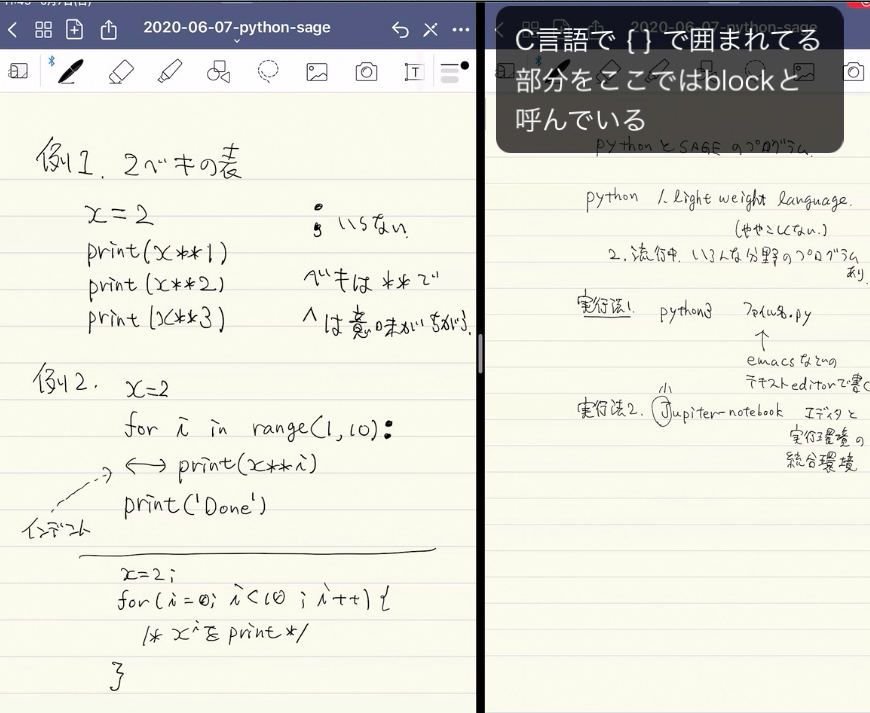 2020-06-07-python-sage
例1. 2ベキの表
x=2
print(x**1)
print(x**2)
print(x**3)
; いらない
ベキは**で
^は意味がちがう.
例2.
x=2
for i in range(1,10):
↔ print(x**i)
print('Done')
インデント
x=2;
for(i=0; i<10; i++){
/* x^i を print */
}
2020-06-07-python-sage
C言語で { } で囲まれてる
部分をここではblockと
呼んでいる
pythonとSAGEのプログラム.
python 1. light weight language.
(ややこしくない.)
2. 流行中. いろんな分野のプログラム
あり.
実行法1. python3 ファイル名.py
↑
emacsなどの
テキストeditorで書く
実行法2. Jupiter-notebook エディタと
実行環境の
統合環境